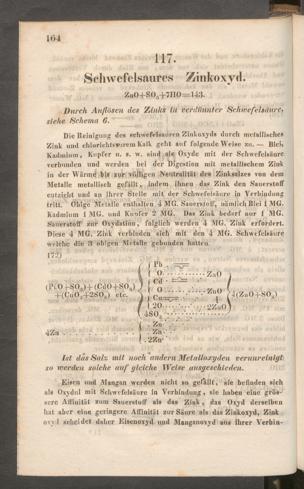 164
117.
Schwefelsaures Zinkoxyd.
ZnO+SO₃+7HO=143.
Durch Auflösen des Zinks in verdünnter Schwefelsäure,
siehe Schema 6.
Die Reinigung des schwefelsauren Zinkoxyds durch metallisches
Zink und chlorichtsaurem Kalk geht auf folgende Weise zu. — Blei,
Kadmium, Kupfer u. s. w. sind als Oxyde mit der Schwefelsäure
verbunden und werden bei der Digestion mit metallischem Zink
in der Wärme bis zur völligen Neutralität des Zinksalzes von dem
Metalle metallisch gefällt, indem ihnen das Zink den Sauerstoff
entzieht und an ihrer Stelle mit der Schwefelsäure in Verbindung
tritt. Obige Metalle enthalten 4 MG. Sauerstoff, nämlich Blei 1 MG.
Kadmium 1 MG. und Kupfer 2 MG. Das Zink bedarf nur 1 MG.
Sauerstoff zur Oxydation, folglich werden 4 MG. Zink erfordert.
Diese 4 MG. Zink verbinden sich mit den 4 MG. Schwefelsäure
welche die 3 obigen Metalle gebunden hatten.
172)
Pb
O ZnO
(PbO+SO₃)+(CdO+SO₃) Cd
O ZnO
+(CuO+2SO₃) etc. Cu 4(ZnO+SO₃)
2O 2ZnO
4SO₃
Zn
4Zn Zn
2Zn
Ist das Salz mit noch andern Metalloxyden verunreinigt
so werden solche auf gleiche Weise ausgeschieden.
Eisen und Mangan werden nicht so gefällt, sie befinden sich
als Oxydul mit Schwefelsäure in Verbindung, sie haben eine grös-
sere Affinität zum Sauerstoff als das Zink, das Oxyd derselben
hat aber eine geringere Affinität zur Säure als das Zinkoxyd, Zink
oxyd scheidet daher Eisenoxyd und Manganoxyd aus ihrer Verbin-